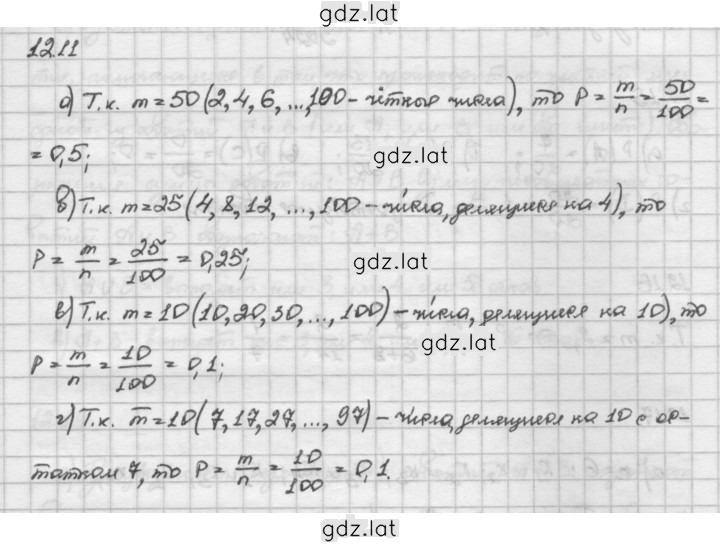 gdz.lat
12.11
а) Т.к. m=50(2,4,6,...,100-чётные числа), то P = m/n = 50/100 =
= 0,5;
gdz.lat
б) Т.к. m=25(4,8,12,...,100-числа, делящиеся на 4), то
P = m/n = 25/100 = 0,25;
gdz.lat
в) Т.к. m=10(10,20,30,...,100)-числа, делящиеся на 10), то
gdz.lat
P = m/n = 10/100 = 0,1;
г) Т.к. m=10(7,17,27,...,97)-числа, делящиеся на 10 с ос-
татком 7, то P = m/n = 10/100 = 0,1.
gdz.lat